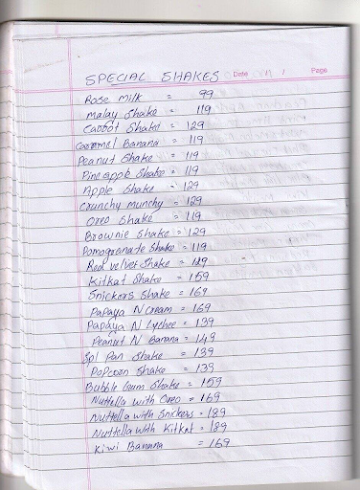 SPECIAL SHAKES Date Page
Rose Milk = 99
Malay Shake = 119
Carrot Shake = 129
Caramel Banana = 119
Peanut Shake = 119
Pineapple Shake = 119
Apple Shake = 129
Crunchy munchy = 129
Oreo Shake = 119
Brownie Shake = 129
Pomogranate Shake = 119
Red velvet Shake = 129
Kitkat Shake = 159
Snickers Shake = 169
Papaya N Cream = 169
Papaya N Lychee = 139
Peanut N Banana = 149
Spl Pan Shake = 139
Popcorn Shake = 139
Bubble Gum Shake = 159
Nuttella with Oreo = 169
Nuttella with Snickers = 189
Nuttella with Kitkat = 189
Kiwi Banana = 169